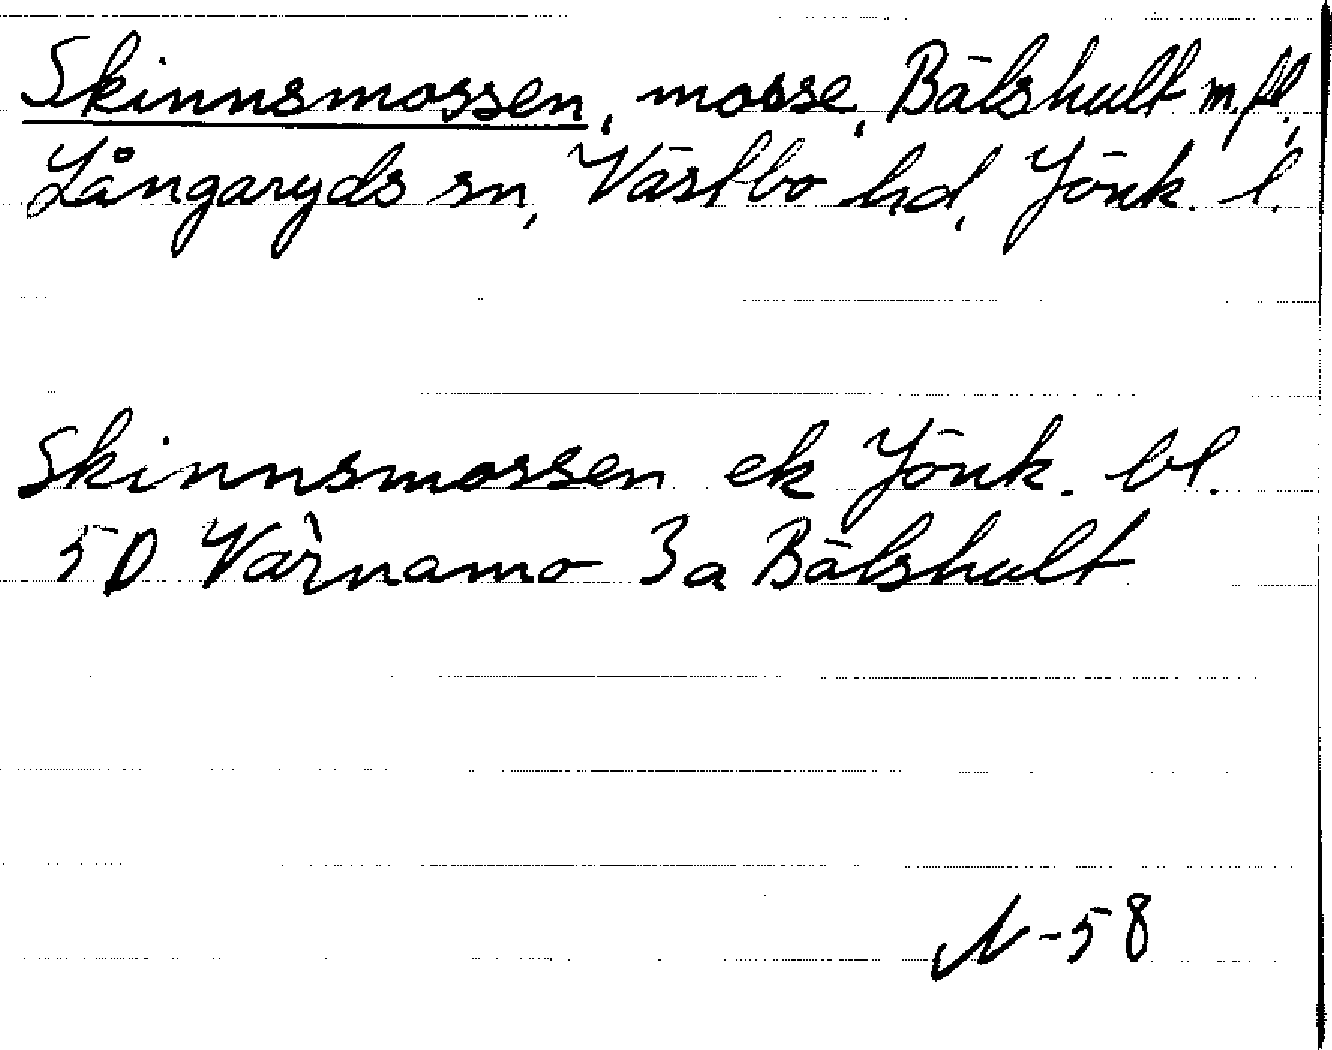 Skinnsmossen, mosse, Bälshult m.fl.,
Långaryds sn, Västbo hd, Jönk. l.
Skinnsmossen ek Jönk. bl.
5D Värnamo 3a Bälshult
N-58